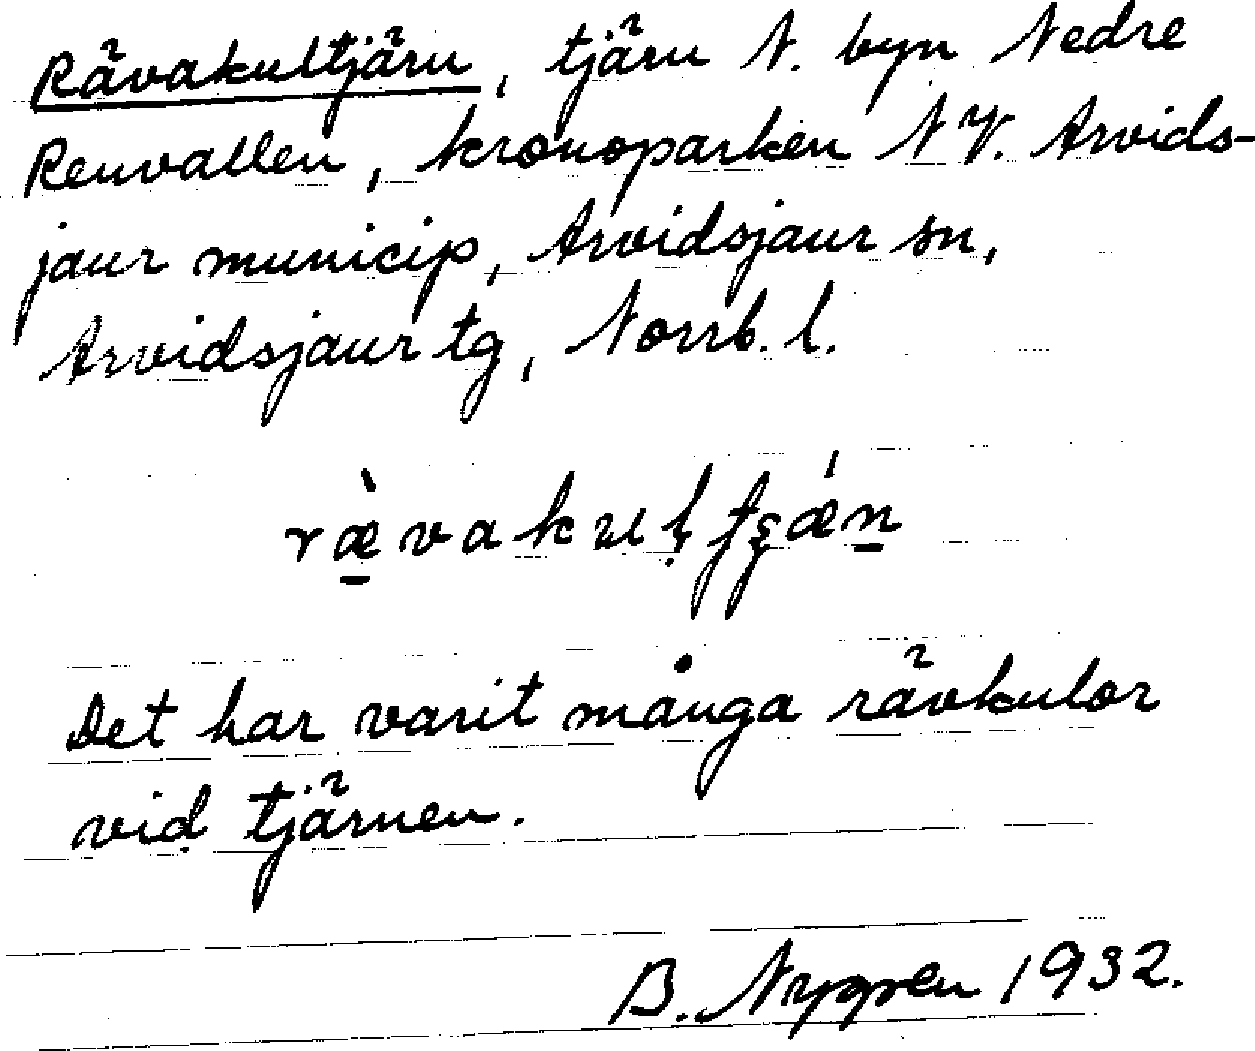 Rävakultjärn, tjärn N. byn Nedre
Renvallen, kronoparken N V. Arvids-
jaur municip, Arvidsjaur sn,
Arvidsjaur tg, Norrb. l.
Det har varit många rävkulor
vid tjärnen.
B. Nygren 1932.